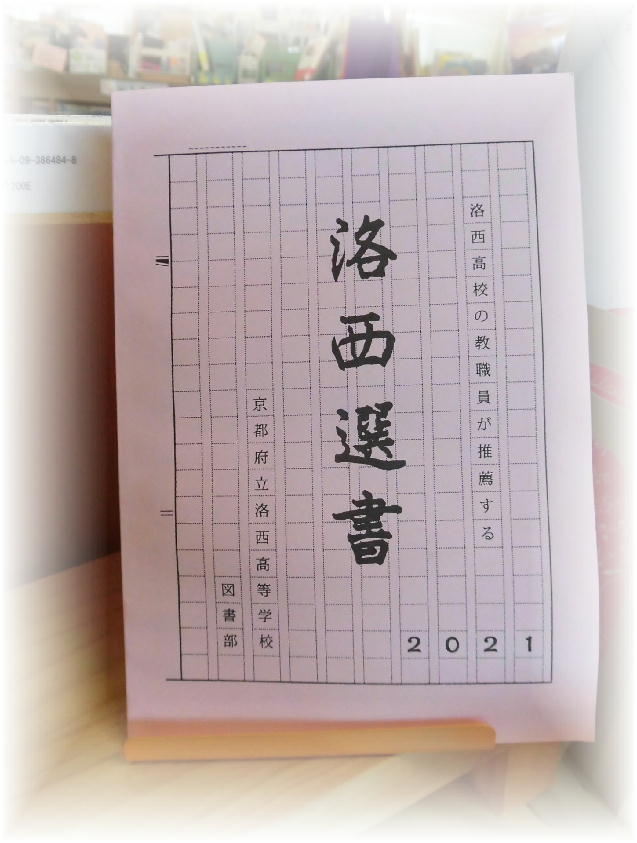 洛西高校の教職員が推薦する
洛西選書
2021
京都府立洛西高等学校
図書部
-09-386484-8
200E